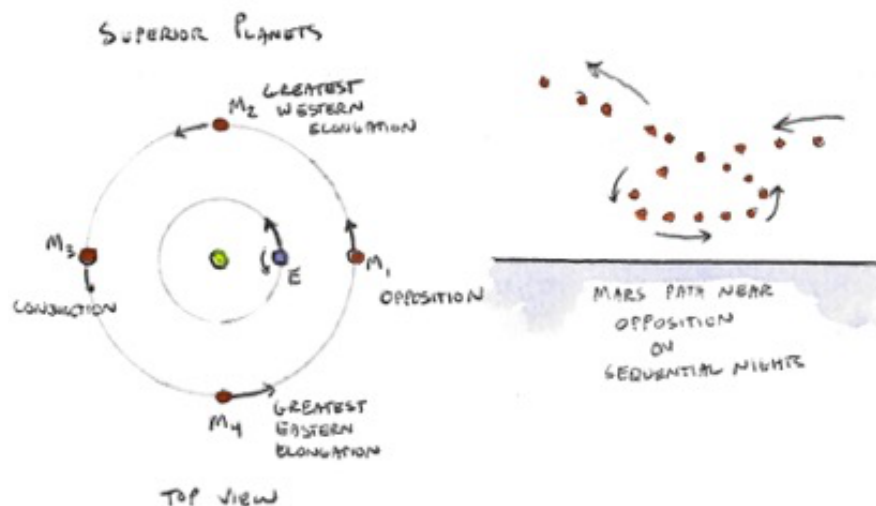 SUPERIOR PLANETS
M2 GREATEST
WESTERN
ELONGATION
M3
CONJUCTION
E
M1
OPPOSITION
M4
GREATEST
EASTERN
ELONGATION
TOP VIEW
MARS PATH NEAR
OPPOSITION
ON
SEQUENTIAL NIGHTS